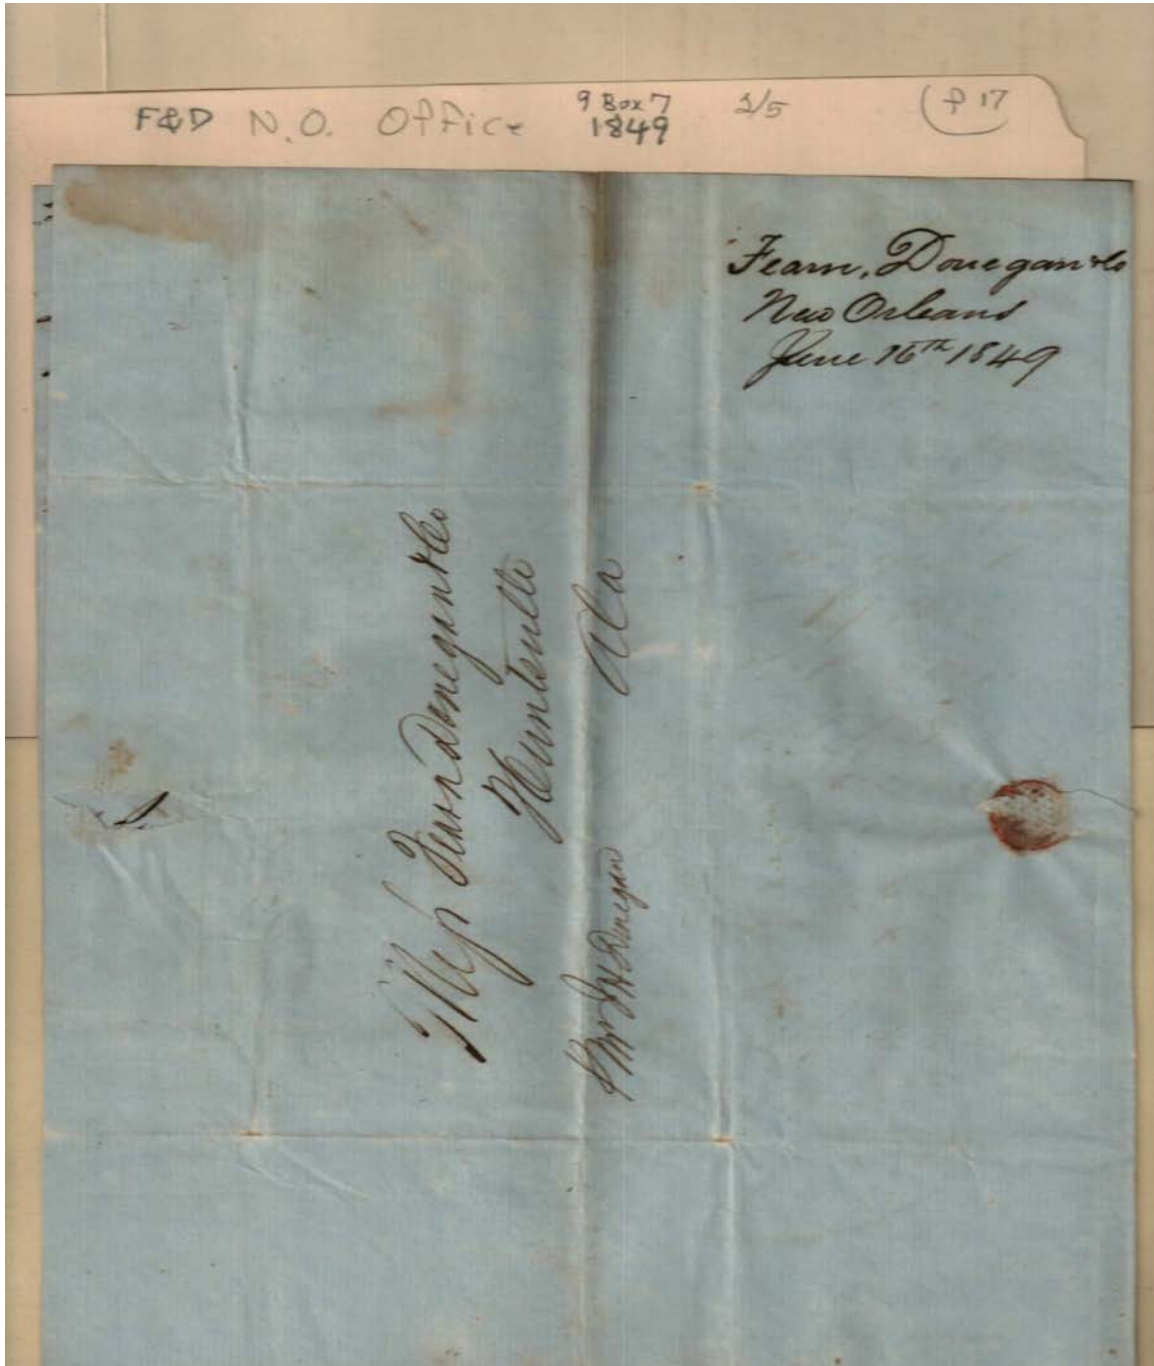 F&D N.O. Office 9 Box 7 1/5 f 17
1849
Fearn, Donegan & Co
New Orleans
June 16th 1849
Mess Fearn Donegan & Co
Huntsville
Ala
Mr J H Donegan